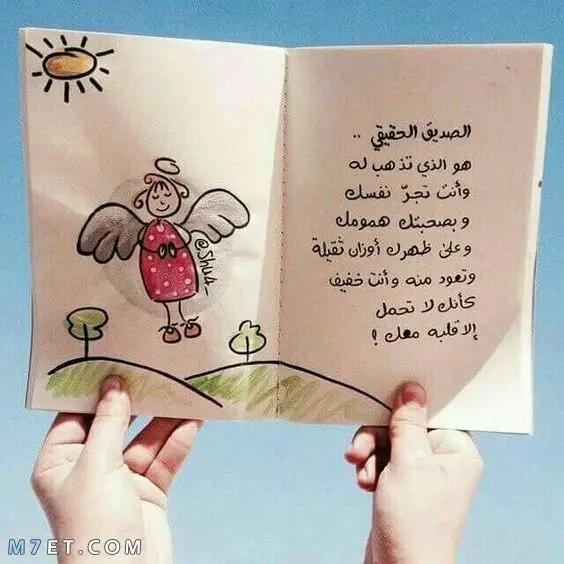 الصديق الحقيقي ..
هو الذي تذهب له
وأنت تجرّ نفسك
وبصحبتك همومك
وعلى ظهرك أوزان ثقيلة
وتعود منه وأنت خفيف
كأنك لا تحمل
إلا قلبه معك !
@Shua_
M7ET.COM